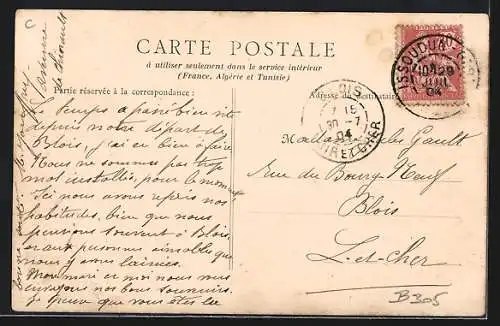 C
CARTE POSTALE
à utiliser seulement dans le service intérieur
(France, Algérie et Tunisie)
Partie réservée à la correspondance:
Adresse du destinataire
ISSOUDUN
29
04
BLOIS
7 15
30 -7
04
LOIR ET CHER
Le temps a passé bien vite
depuis notre départ de
Blois, j'ai eu bien à faire
Nous ne sommes pas trop
mal installés, pour le moment
Ici nous avons repris nos
habitudes, bien que nous
pensions souvent à Blois,
et aux personnes aimables que
nous y avons laissées.
Mon mari et moi nous vous
envoyons nos bons souvenirs.
Je pense que vous êtes
Madame Jules Gault
rue du Bourg Neuf
Blois
L-et-cher
B305